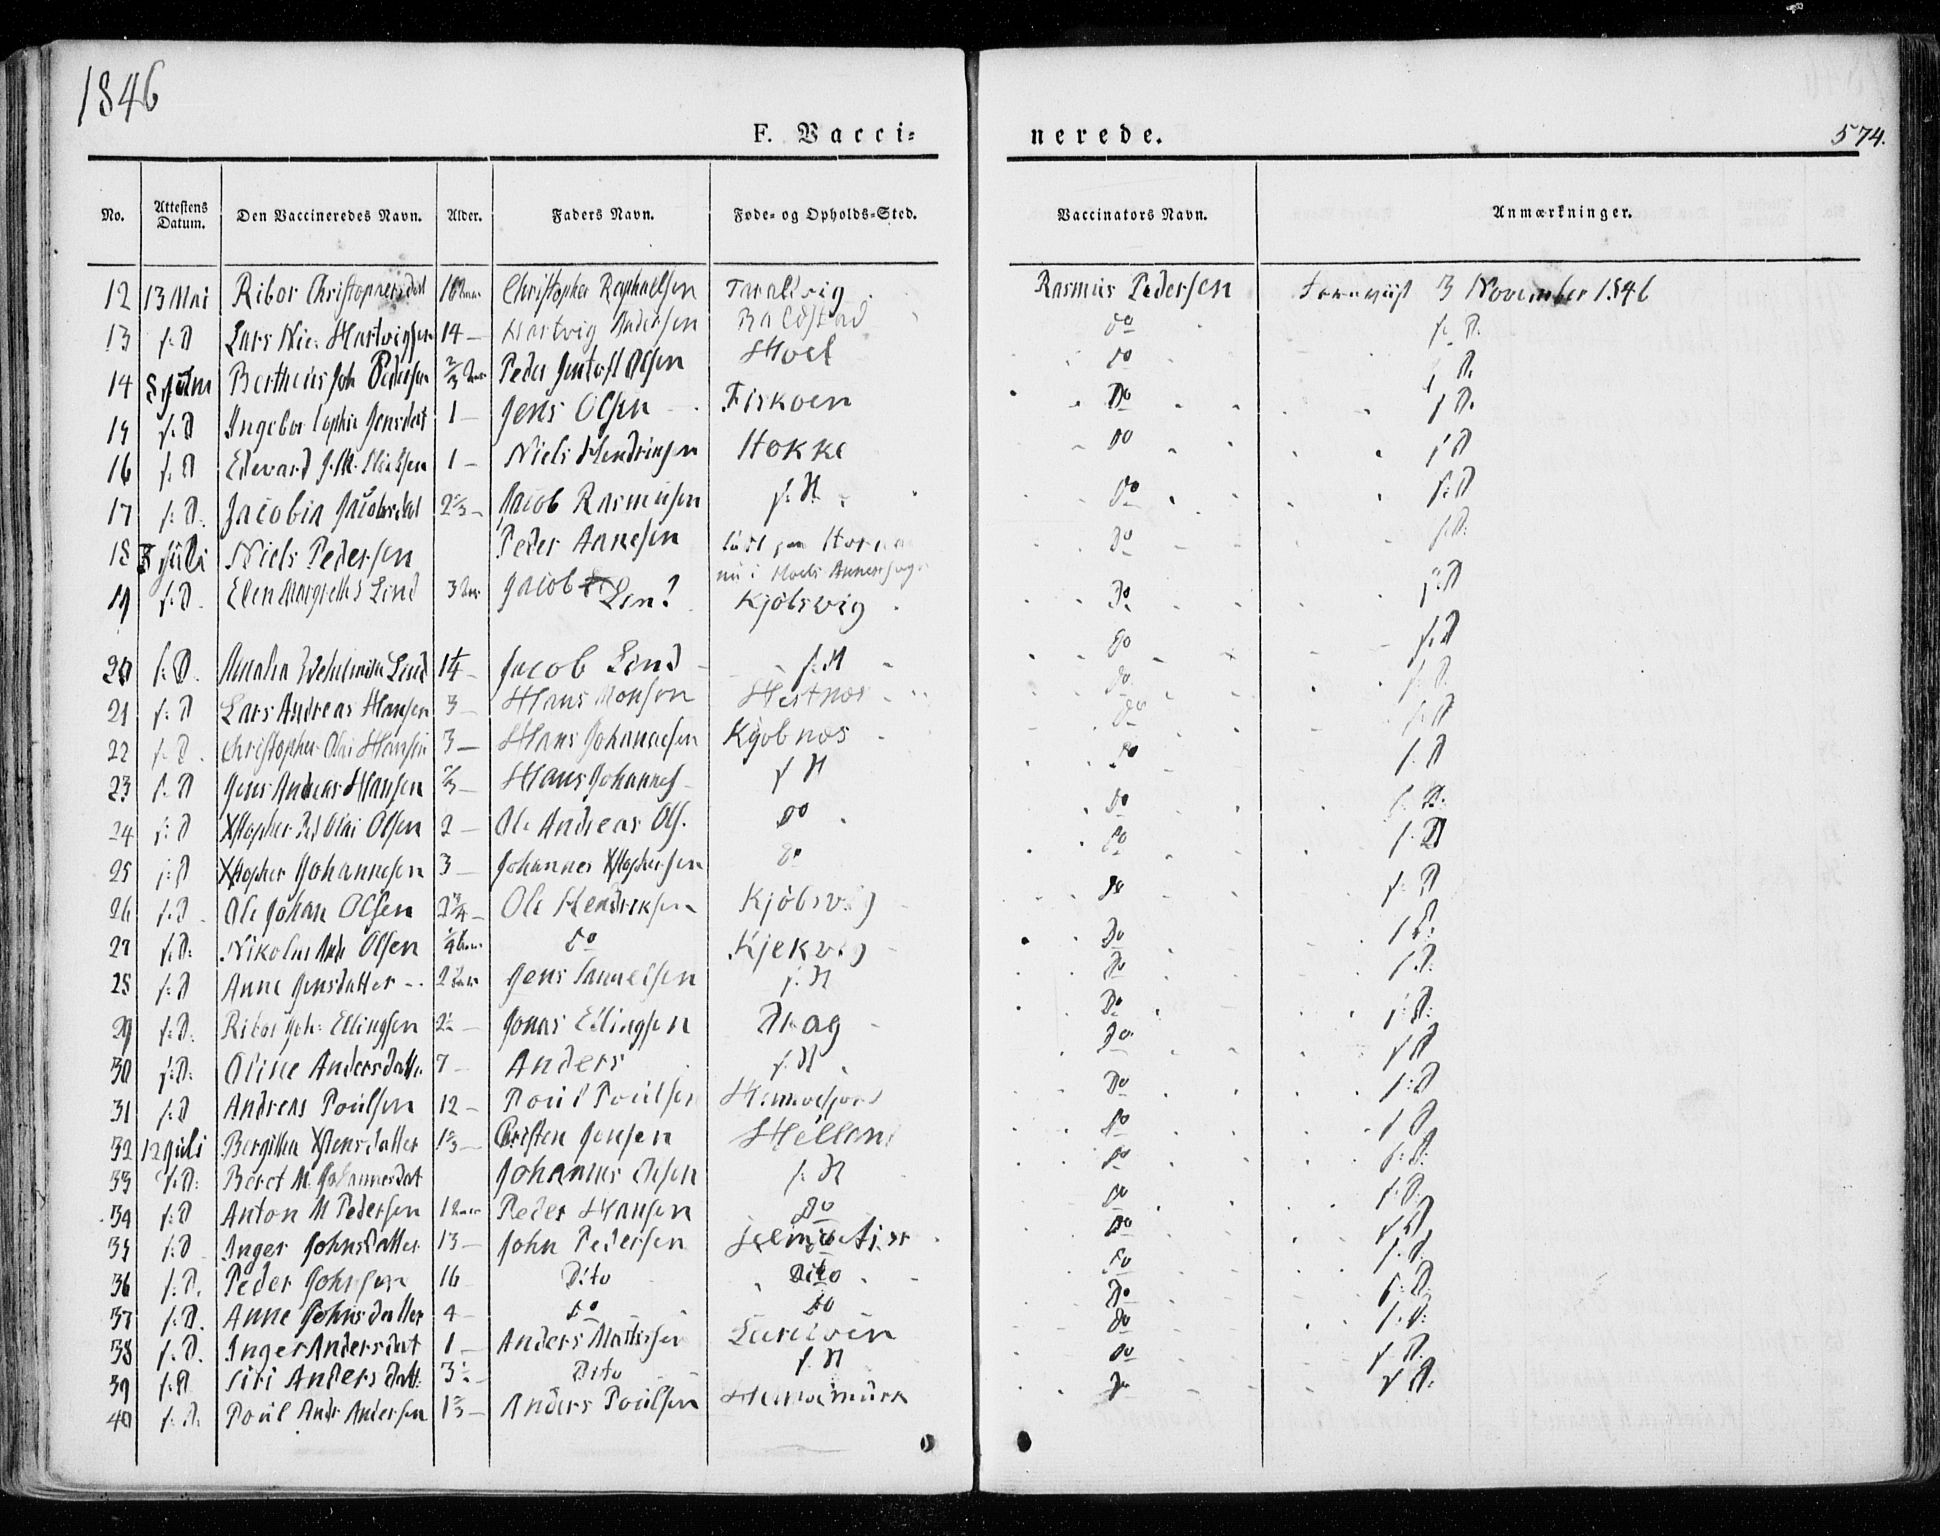 1846
F. Vacci=
nerede.
574.
No. Attestens Datum. Den Vaccineredes Navn. Alder. Faders Navn. Føde= og Opholds=Sted. Vaccinators Navn. Anmærkninger.
12 13 Mai Ribor Christophersdat Christopher Raphaelsen Taraldvig Rasmus Pedersen 3 November 1846
13 s: D Lars Nic: Hartvigsen 14 – Hartvig Andersen do s: D.
14 Joh Pedersen 2/3 Peder Olsen Hoel do s: D.
15 s: D Ingebor Sophie Jensdat 1 – Jens Olsen Fiskoen Do s: D.
16 s: D Edevard J. M. 1 – Niels Hendriksen Hokke do s: D
17 s: D. Jacobia Jacobsdat 2 2/3 – Jacob Rasmusen s: St. Do s: D
18 Juli Niels Pedersen Peder Annesen Do s: D:
19 s: D. Elen Margrethe Lind 3 Jacob Lin? Kjöbsvig Do s: D
20 s: D. Amalia Lind 1 1/4 – Jacob Lind s: St do s: D
21 s: D Lars Andreas Hansen 3 – Hans Monsen Hestnæs do s: D.
22 s: D. Christopher Olai Hansen 3 – Hans Johannesen Kjöbnæs do s: D
23 s: D Jens Andreas Hansen 2/3 – Hans Johannes s: St do s: D
24 s: D Xstopher Olai Olsen 2 – Ole Andreas Ols. do do s: D.
25 s: D Xstopher Johannesen 3 – Johannes Xstophersen do do s: D
26 s: D Ole Johan Olsen 2 3/4 – Ole Hendriksen Kjöbsvig do s: D
27 s: D. Nikolai And Olsen do Kjekvig Do s: D.
28 s: D Anne Jensdatter Jens Samuelsen s: St Do s: D.
29 s: D. Ribor Joh: Ellingsen 2 1/2 – Jonas Ellingsen Drag Do s: D:
30 s: D: Oline Andersdatter 7 – Anders s: St Do s: D
31 s: D Andreas Poulsen 12 – Poul Poulsen Do s: D
32 12 Juli Xstensdatter 1 2/3 – Christen Jensen Hellan do s: D
33 s: D: Beret M. Johannesdat Johannes Olsen s: St do s: D:
34 s: D Anton M Pedersen Peder Hansen Do do s: D.
35 s: D Inger Johnsdatter 13 – John Pedersen Do s: D
36 s: D. Peder Johnsen 16 Dito Dito do s: D.
37 s: D. Anne Johnsdatter 4 – do do Do s: D.
38 s: D. Inger Andersdat 1 – Anders do s: D:
39 s: D Siri Andersdatt: 3 1/2 – Dito s: St do s: D.
40 s: D. Poul Andr Andersen 1 2/3 – Anders Poulsen Do s: D.